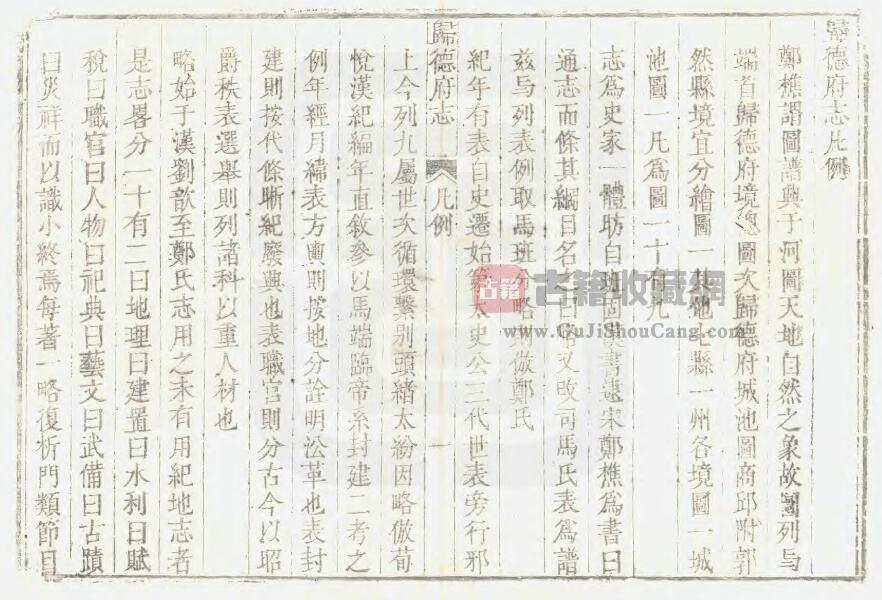 歸德府志凡例
鄭樵謂圖譜興于河圖天地自然之象故圖列与
端首歸德府境總圖次歸德府城池圖商邱附郭
然縣境宜分繪圖一其他七縣一州各境圖一城
池圖一凡為圖一十有九
志為史家一體昉自班固漢書逮宋鄭樵為書曰
通志而條其綱目名之曰略又改司馬氏表為譜
茲与列表例取馬班分略明倣鄭氏
紀年有表自史遷始第太史公三代世表旁行邪
歸德府志 凡例 一
上今列九屬世次循環繫别頭緒太紛因略倣荀
悅漢紀編年直敘參以馬端臨帝系封建二考之
例年經月緯表方輿則按地分詮明沿革也表封
建則按代條晰紀廢興也表職官則分古今以昭
爵秩表選舉則列諸科以重人材也
略始于漢劉歆至鄭氏志用之未有用紀地志者
是志畧分一十有二曰地理曰建置曰水利曰賦
稅曰職官曰人物曰祀典曰藝文曰武備曰古蹟
曰災祥而以識小終焉每著一略復析門類節目
古籍 古籍收藏網
www.GuJiShouCang.com